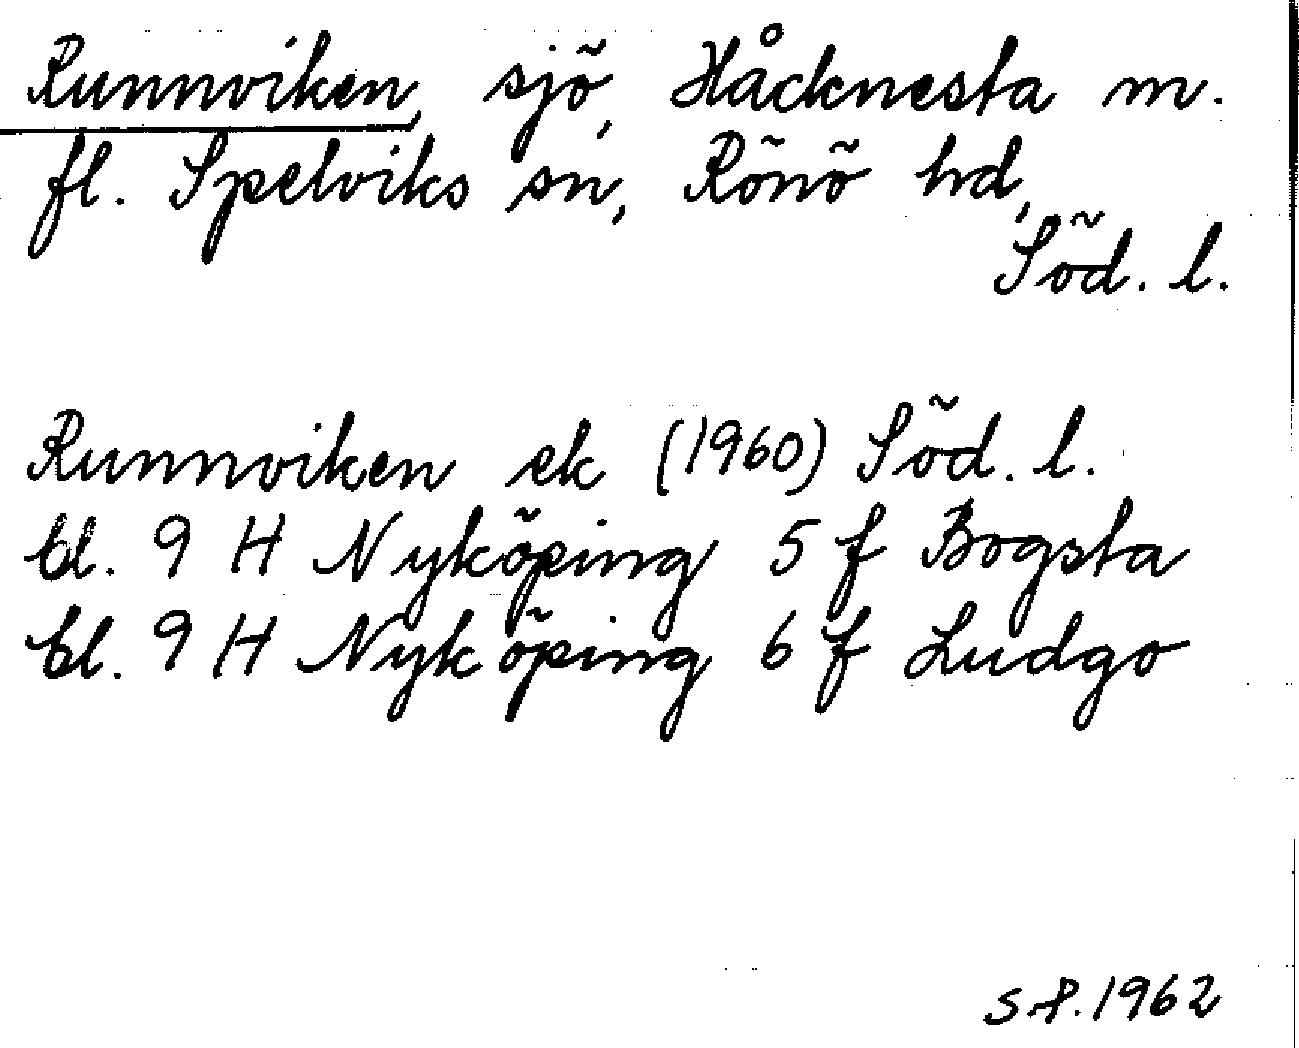 Runnviken, sjö, Håcknesta m.
fl. Spelviks sn, Rönö hd,
Söd. l.
Runnviken ek (1960) Söd. l.
bl. 9 H Nyköping 5 f Bogsta
bl. 9 H Nyköping 6 f Ludgo
S.P. 1962